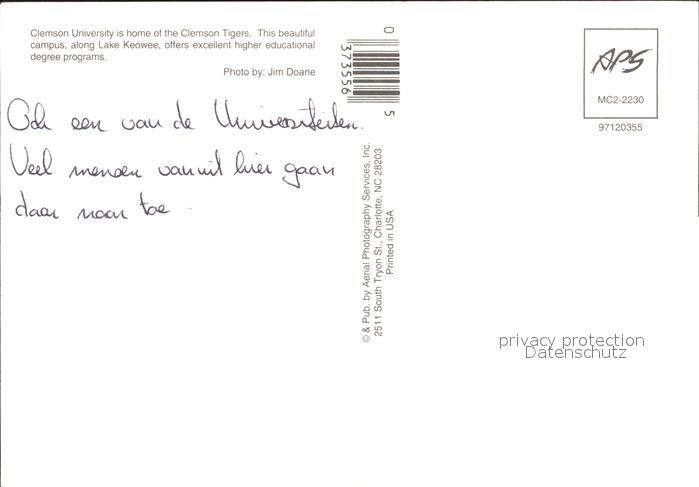 Clemson University is home of the Clemson Tigers. This beautiful
campus, along Lake Keowee, offers excellent higher educational
degree programs.
Photo by: Jim Doane
Ook een van de Universiteiten.
Veel mensen vanuit hier gaan
daar naar toe.
0
373556
5
© & Pub. by Aerial Photography Services, Inc.
2511 South Tryon St., Charlotte, NC 28203
Printed in USA
APS
MC2-2230
97120355
privacy protection
Datenschutz